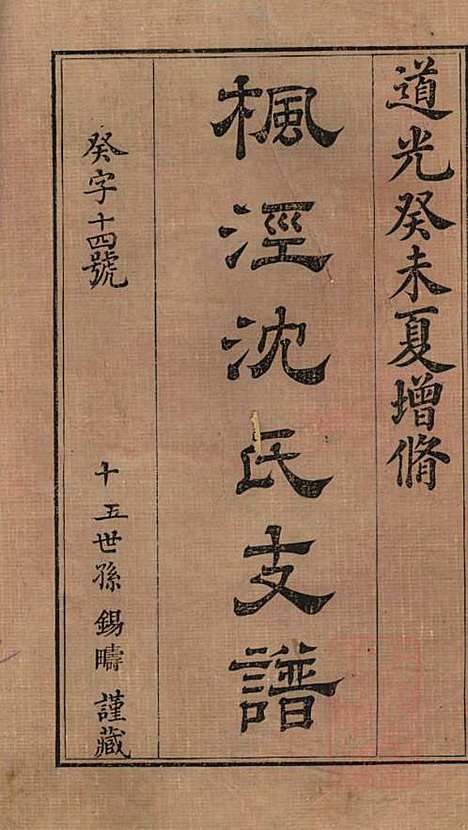 道光癸未夏增脩
楓涇沈氏支譜
癸字十四號
十五世孫錫疇謹藏